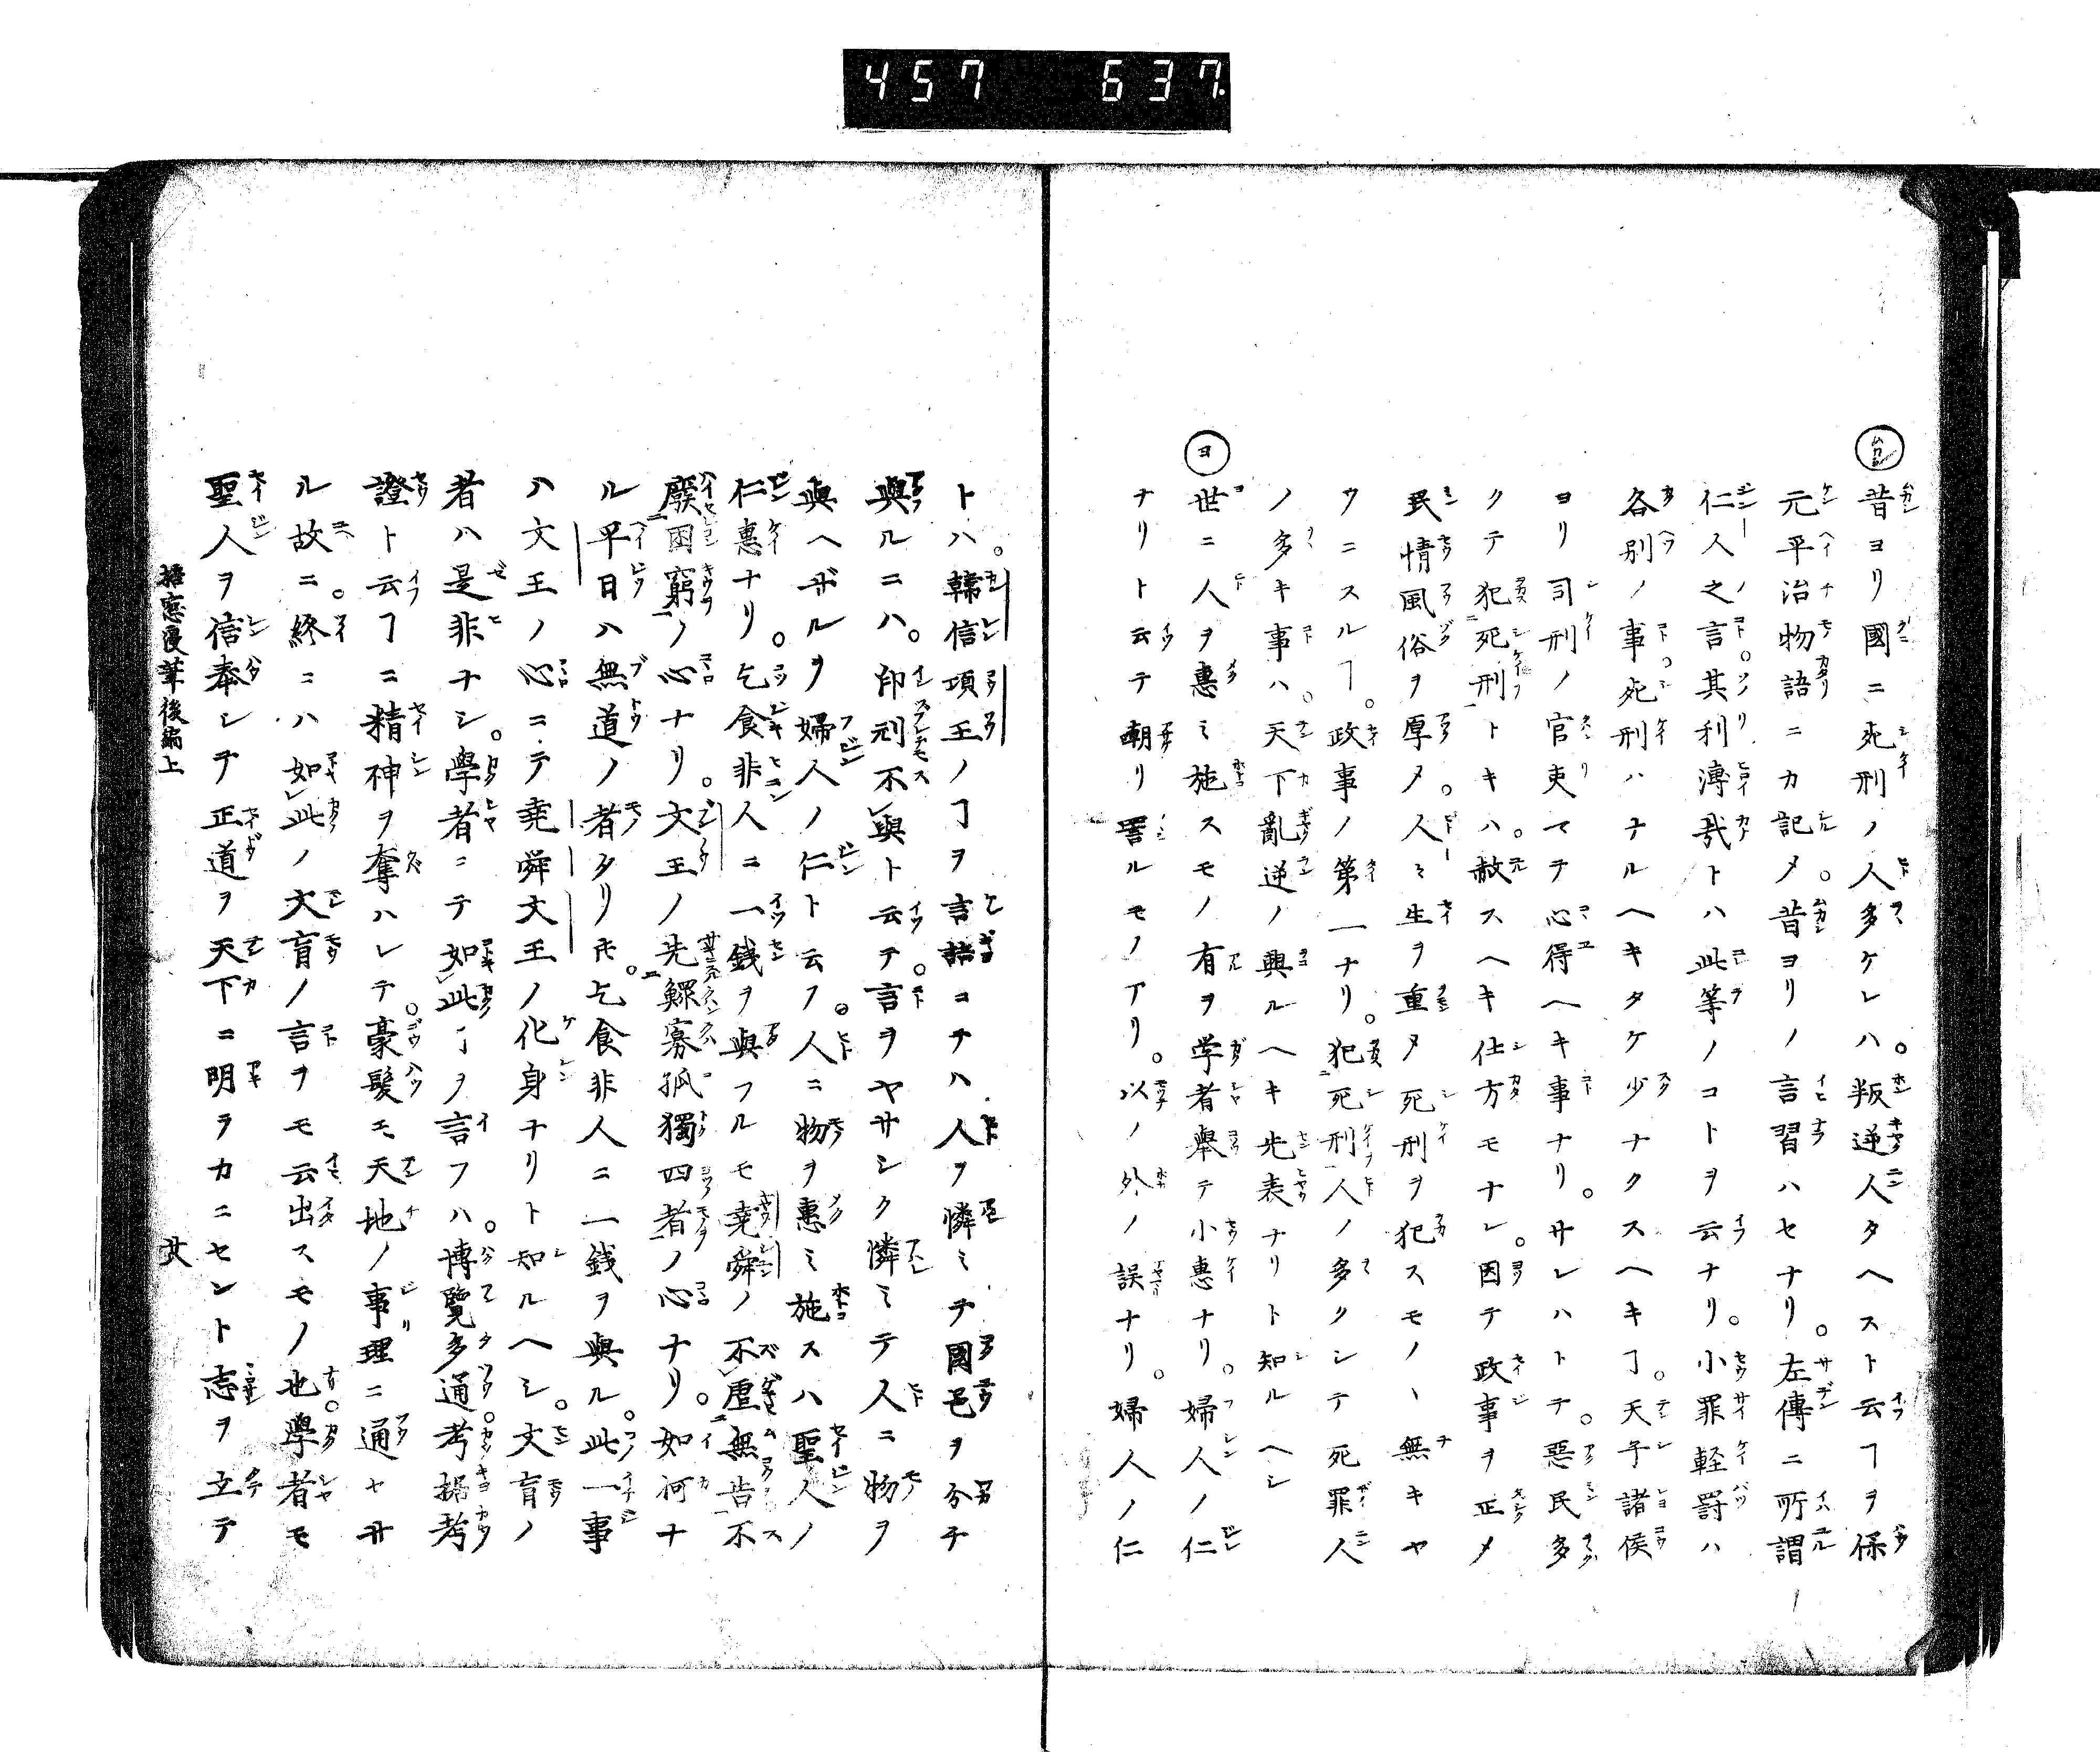 457 637
昔ヨリ國ニ死刑ノ人多ケレハ。叛逆人タヘスト云ヿヲ保
元平治物語ニカ記メ。昔ヨリノ言習ハセナリ。左傳ニ所謂
仁人之言其利溥哉トハ此等ノコトヲ云ナリ。小罪軽罰ハ
各別ノ事死刑ハナルヘキタケ少ナクスヘキヿ。天子諸侯
ヨリ司刑ノ官吏マテ心得ヘキ事ナリ。サレハトテ。惡民多
クテ犯死刑トキハ。赦スヘキ仕方モナレ。因テ政事ヲ正メ
民情風俗ヲ厚メ。人々生ヲ重メ死刑ヲ犯スモノヽ無キヤ
ウニスルヿ。政事ノ第一ナリ。犯死刑人ノ多クシテ死罪人
ノ多キ事ハ。天下亂逆ノ興ルヘキ先表ナリト知ルヘシ
ヨ
世ニ人ヲ惠ミ施スモノ有ヲ学者舉テ小惠ナリ。婦人ノ仁
ナリト云テ嘲リ詈ルモノアリ。以ノ外ノ誤ナリ。婦人ノ仁
トハ。韓信項王ノヿヲ言語コチハ人ヲ憐ミテ國邑ヲ分チ
與ルニハ。印刓不與ト云テ。言ヲヤサシク憐ミテ人ニ物ヲ
與ヘザルヲ婦人ノ仁ト云フ。人ニ物ヲ惠ミ施スハ聖人ノ
仁惠ナリ。乞食非人ニ一錢ヲ與フルモ堯舜ノ不虐無告不
廢困窮ノ心ナリ。文王ノ先鰥寡孤獨四者ノ心ナリ。如何ナ
ル平日ハ無道ノ者タリ𪜈。乞食非人ニ一銭ヲ與ル。此一事
ハ文王ノ心ニテ堯舜文王ノ化身ナリト知ルヘシ。文盲ノ
者ハ是非ナシ。學者ニテ如此ヿヲ言フハ。博覽多通考據考
證ト云フヿニ精神ヲ奪ハレテ。豪髪モ天地ノ事理ニ通セサ
ル故ニ。終ニハ如此ノ文盲ノ言ヲモ云出スモノ也。學者モ
聖人ヲ信奉シテ正道ヲ天下ニ明ラカニセント志ヲ立テ
梧窓漫筆後編上
廿六